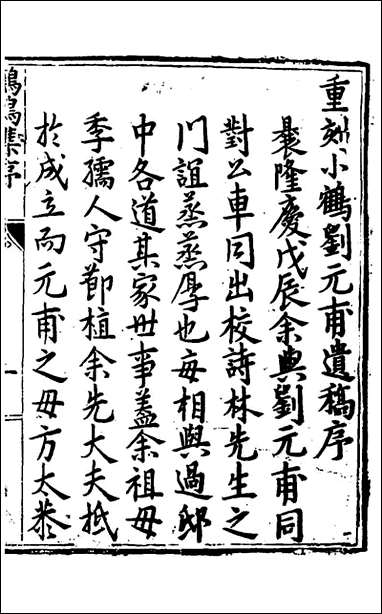 重刻小鶴劉元甫遺稿序
曩隆慶戊辰余與劉元甫同
對公車同出校詩林先生之
門誼蒸蒸厚也每相與過邸
中各道其家世事蓋余祖母
季孺人守節植余先大夫抵
於成立而元甫之母方太恭
集序
一